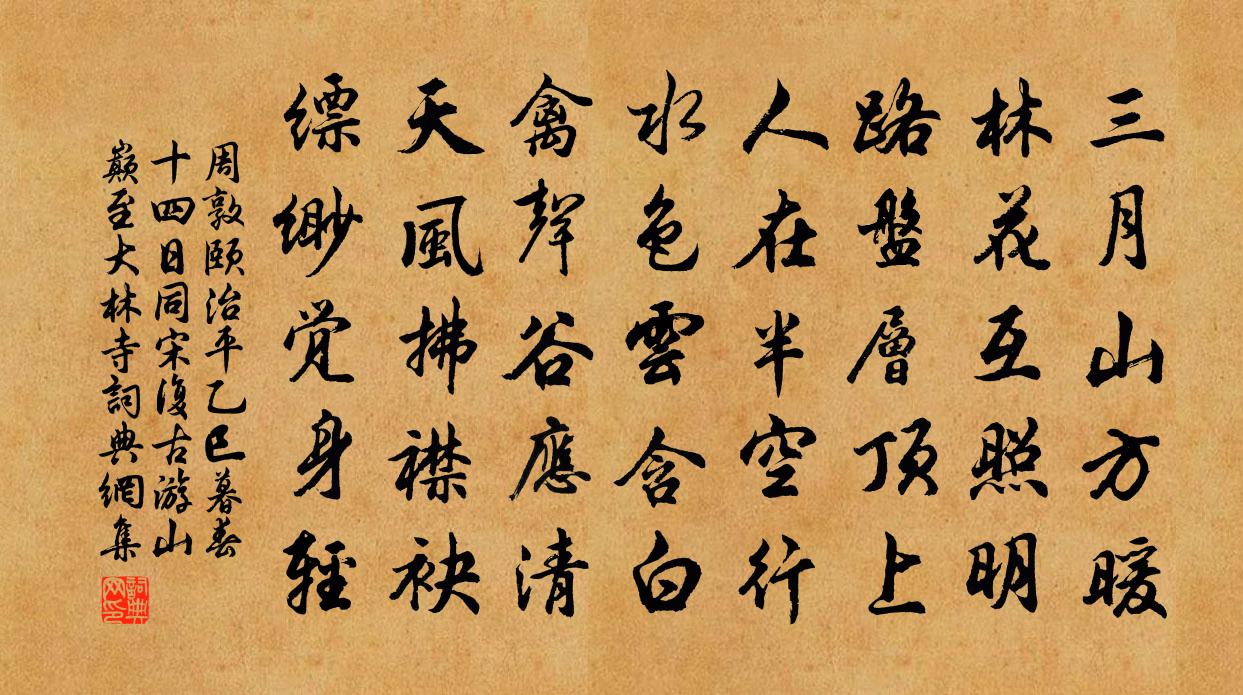 三月山方暖
林花互照明
路盤層頂上
人在半空行
水色雲含白
禽聲谷應清
天風拂襟袂
缥缈觉身輕
周敦頤治平乙巳暮春
十四日同宋復古游山
巔至大林寺詞典網集